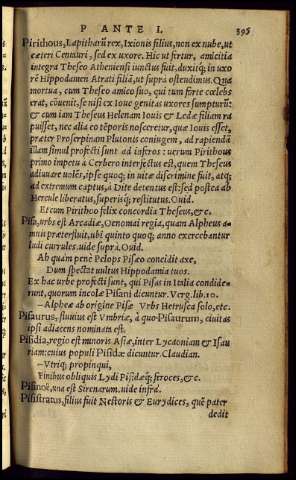 P ANTE I. 395
Pirithous, Lapitharũ rex, Ixionis filius, non ex nube, ut
cæteri Centauri, sed ex uxore. Hic ut fertur, amicitia
integra Theseo Atheniensi iunctus fuit, duxitq; in uxo
rẽ Hippodamen Atrati filiã, ut supra ostendimus. Qua
mortua, cum Theseo amico suo, qui tum forte cœlebs
erat, cõuenit, se nisi ex Ioue genitas uxores sumpturũ:
& cum iam Theseus Helenam Iouis & Ledæ filiam ra
puisset, nec alia eo tẽporis nosceretur, quæ Iouis esset,
præter Proserpinam Plutonis coniugem, ad rapiendã
illam simul profecti sunt ad inferos: uerum Pirithous
primo impetu a Cerbero interfectus est, quem Theseus
adiuuare uolẽs, ipse quoq; in uitæ discrimine fuit, atq;
ad extremum captus, a Dite detentus est: sed postea ab
Hercule liberatus, superisq; restitutus. Ouid.
Et cum Pirithoo felix concordia Theseus, &c.
Pisa, urbs est Arcadiæ, Oenomai regia, quam Alpheus a-
mnis præterfluit, ubi quinto quoq; anno exercebantur
ludi currules. uide supra. Ouid.
Ab quam pene Pelops Pisæo concidit axe,
Dum spectat uultus Hippodamia tuos.
Ex hac urbe profecti sunt, qui Pisas in Italia condide-
runt, quorum incolæ Pisani dicuntur. Verg. lib. 10.
– Alpheæ ab origine Pisæ Vrbs Hetrusca solo, etc.
Pisaurus, fluuius est Vmbriæ, à quo Pisaurum, ciuitas
ipsi adiacens nominata est.
Pisidia, regio est minoris Asiæ, inter Lycaoniam & Isau
riam: cuius populi Pisidæ dicuntur. Claudian.
– Vtriq; propinqui,
Finibus obliquis Lydi Pisidæq; feroces, &c.
Pisinoë, una est Sirenarum, uide infrà.
Pisistratus, filius fuit Nestoris & Eurydices, quẽ pater
dedit